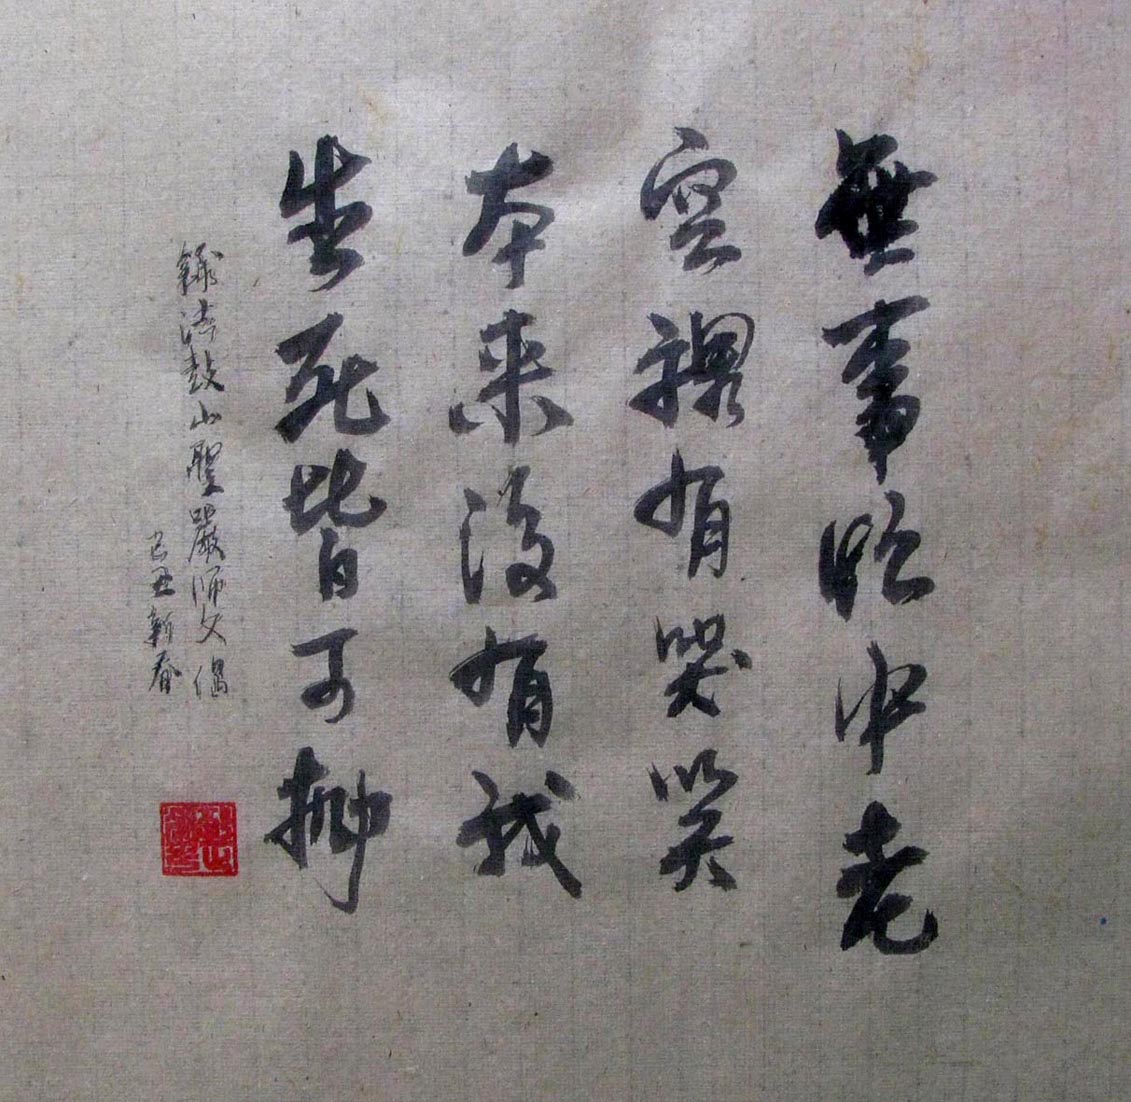 無事忙中老
空裡有哭笑
本來沒有我
生死皆可拋
錄法鼓山聖嚴師父偈
己丑新春